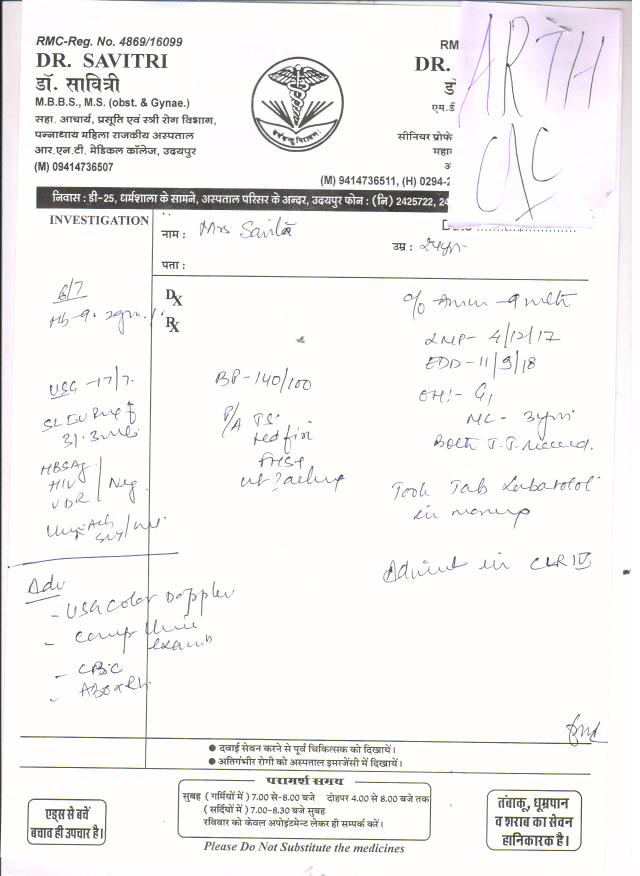 RMC-Reg. No. 4869/16099
DR. SAVITRI
डॉ. सावित्री
M.B.B.S., M.S. (obst. & Gynae.)
सहा. आचार्य, प्रसूति एवं स्त्री रोग विभाग,
पन्नाध्याय महिला राजकीय अस्पताल
आर.एन.टी. मेडिकल कॉलेज, उदयपुर
(M) 09414736507
RM
DR.
डॉ
एम.डी
सीनियर प्रोफे
महा
(M) 9414736511, (H) 0294-2
ARTH
CAC
निवास : डी-25, धर्मशाला के सामने, अस्पताल परिसर के अन्दर, उदयपुर फोन : (नि) 2425722, 24
INVESTIGATION
नाम : Mrs Savita
उम्र : 24yr
पता :
6/7
Hb-9.2gm.
Dx
Rx
c/o Amen - 9 mth
LMP- 4/12/17
EDD-11/9/18
OH:- G1
ML- 3yrs
Both T.T. received.
Took Tab Labatolol
in morning
Admit in CLR IV
USG -17/7.
HBSAg
HIV
VDR / Neg.
BP-140/100
P/A TS.
FHS+
Adv
- USG Color Doppler
- Comp Urine
exam
- CBC
- ABO & Rh.
● दवाई सेवन करने से पूर्व चिकित्सक को दिखायें।
● अतिगंभीर रोगी को अस्पताल इमरजेंसी में दिखायें।
परामर्श समय
सुबह ( गर्मियों में ) 7.00 से-8.00 बजे दोहपर 4.00 से 8.00 बजे तक
( सर्दियों में ) 7.00-8.30 बजे सुबह
रविवार को केवल अपोइंटमेण्ट लेकर ही सम्पर्क करें।
एड्स से बचें
बचाव ही उपचार है।
तंबाकू, धूम्रपान
व शराब का सेवन
हानिकारक है।
Please Do Not Substitute the medicines